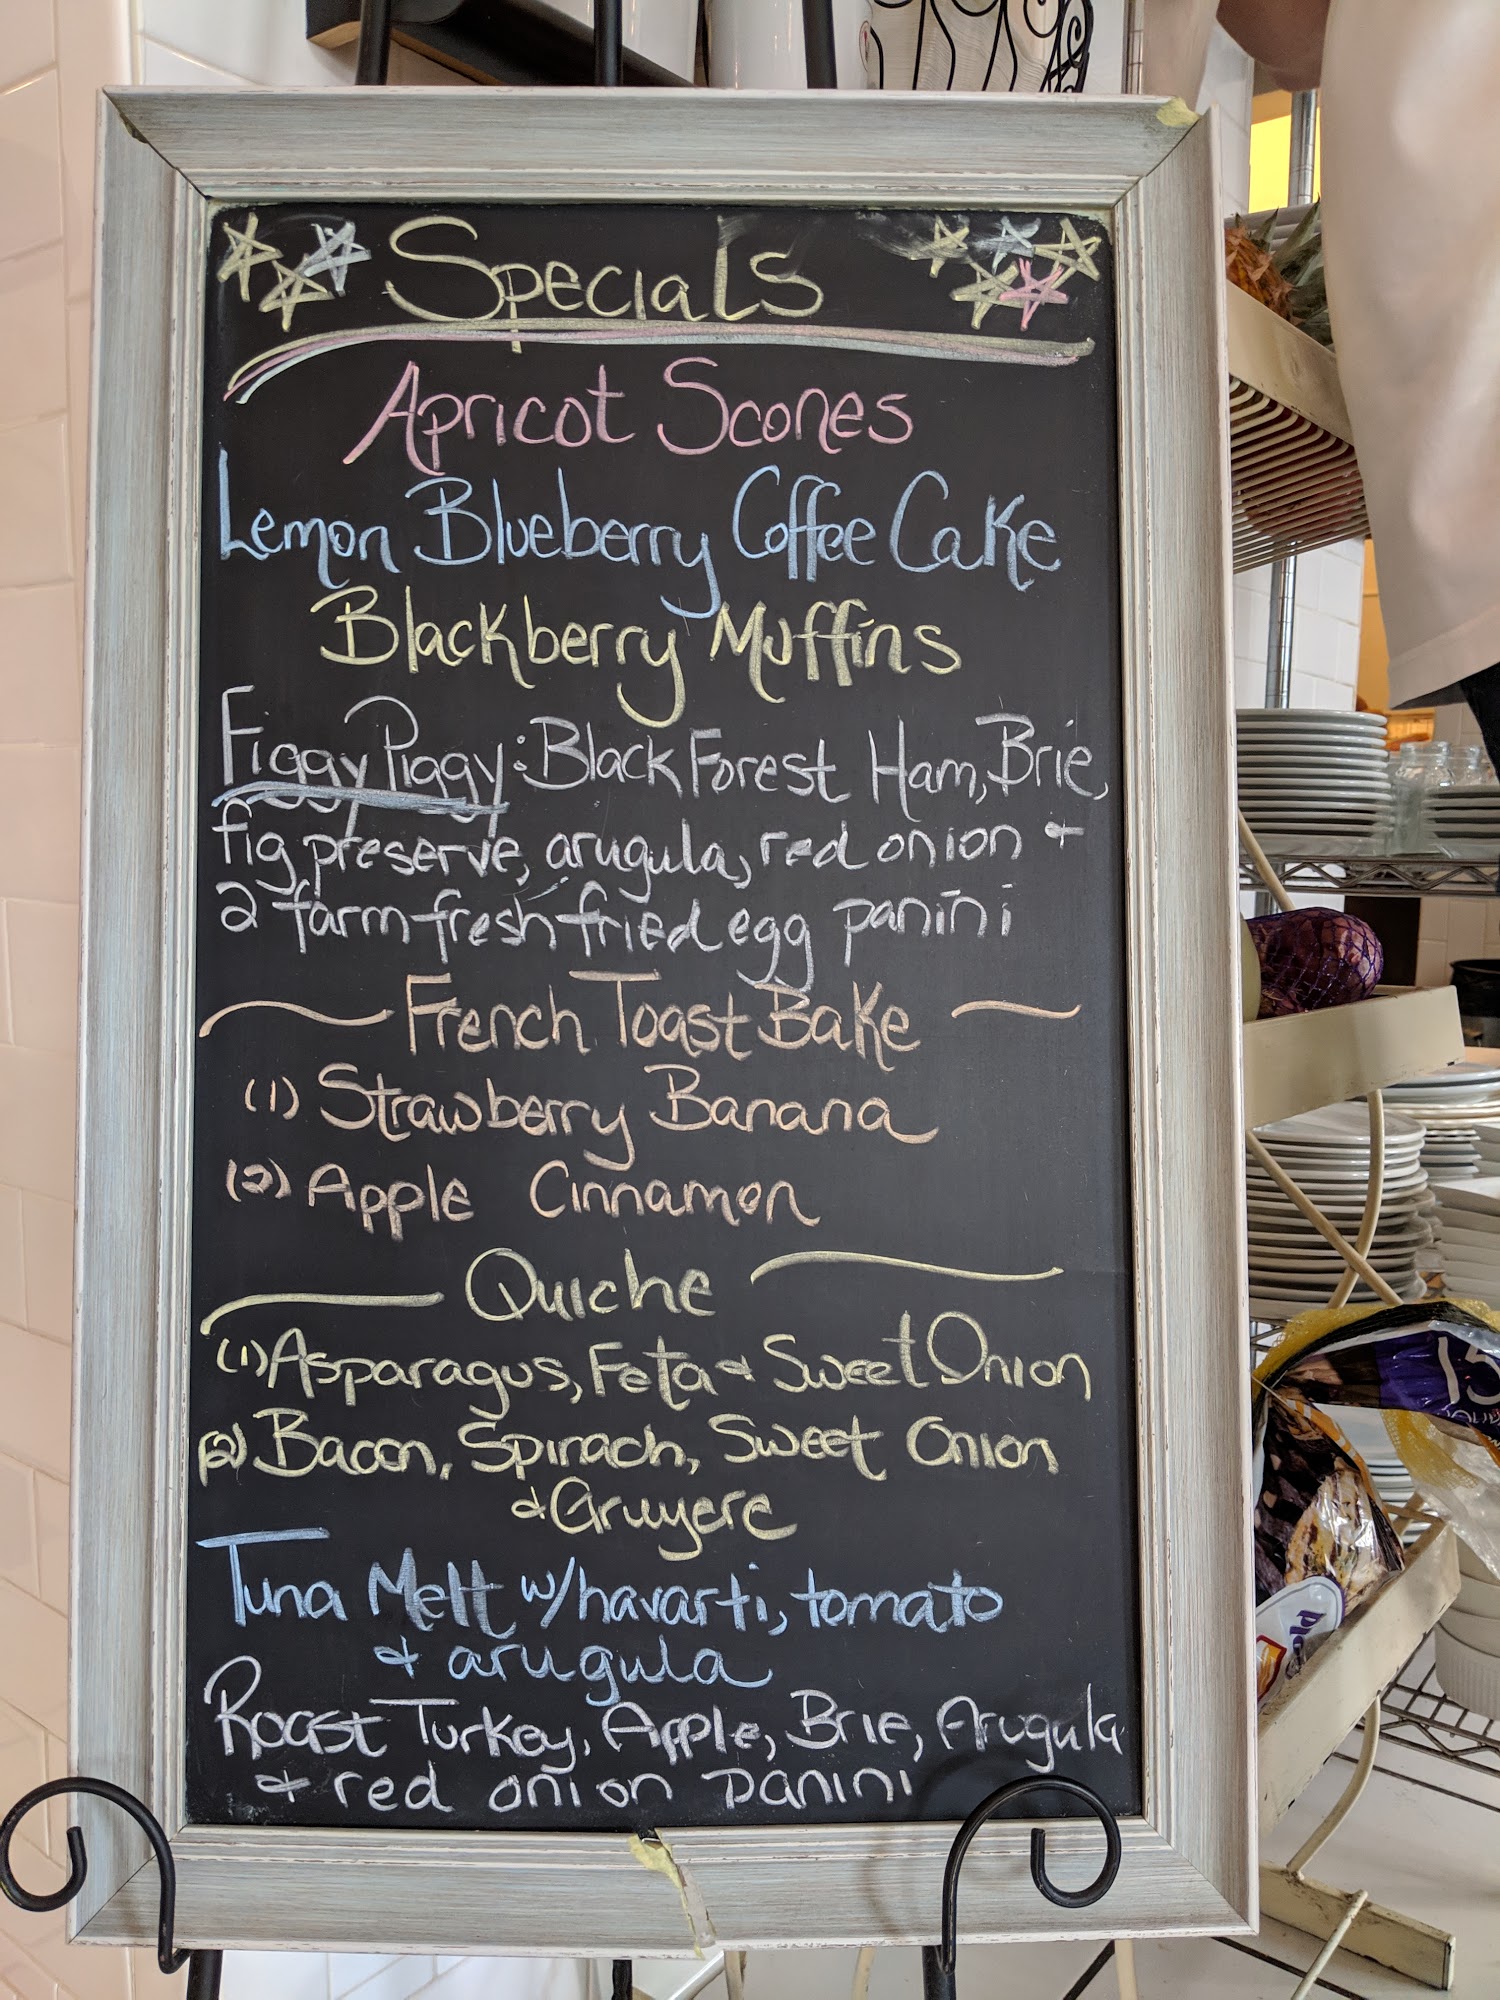 Specials
Apricot Scones
Lemon Blueberry Coffee Cake
Blackberry Muffins
Figgy Piggy: Black Forest Ham, Brie,
fig preserve, arugula, red onion &
2 farm fresh fried egg panini
French Toast Bake
(1) Strawberry Banana
(2) Apple Cinnamon
Quiche
(1) Asparagus, Feta & Sweet Onion
(2) Bacon, Spinach, Sweet Onion
& Gruyere
Tuna Melt w/havarti, tomato
& arugula
Roast Turkey, Apple, Brie, Arugula
& red onion panini
15